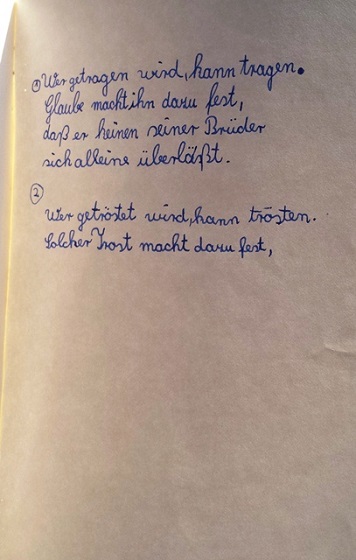 ① Wer getragen wird, kann tragen.
Glaube macht ihn dazu fest,
daß er keinen seiner Brüder
sich alleine überläßt.
②
Wer getröstet wird, kann trösten.
Solcher Trost macht dazu fest,